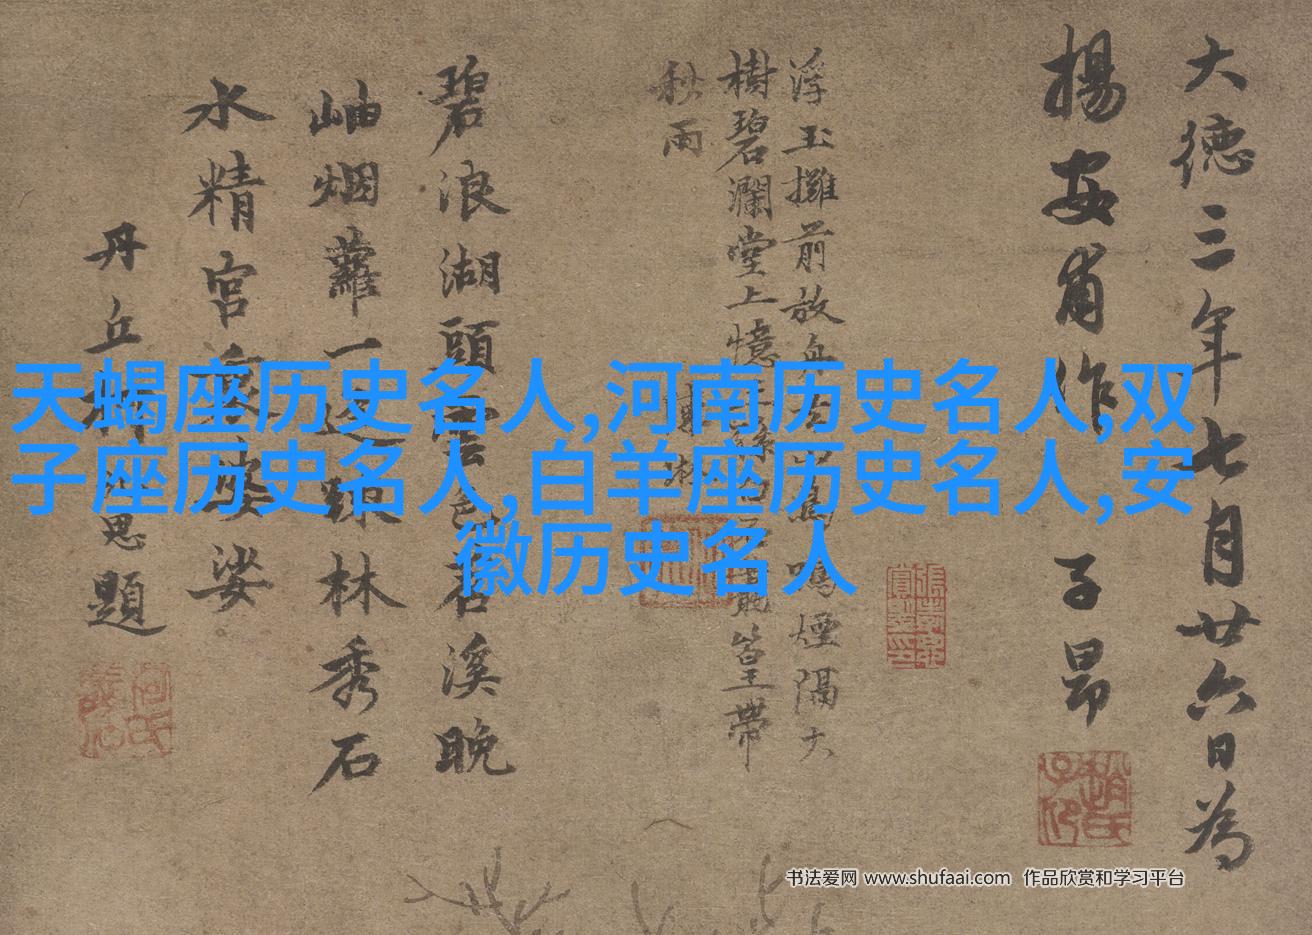 大德三年七月廿六日為
揚安甫作
子昂
趙氏子印
浮玉攤前放
鳴煙隔大
樹碧瀾堂上憶
篁帶
秋雨
碧浪湖頭雲色
石溪晚
岫烟蘿一
林秀石
水精宮
娑
丹丘柯
思題
天蝎座历史名人,河南历史名人,双
子座历史名人,白羊座历史名人,安
徽历史名人
书法爱网 www.shufaai.com 作品欣赏和学习平台